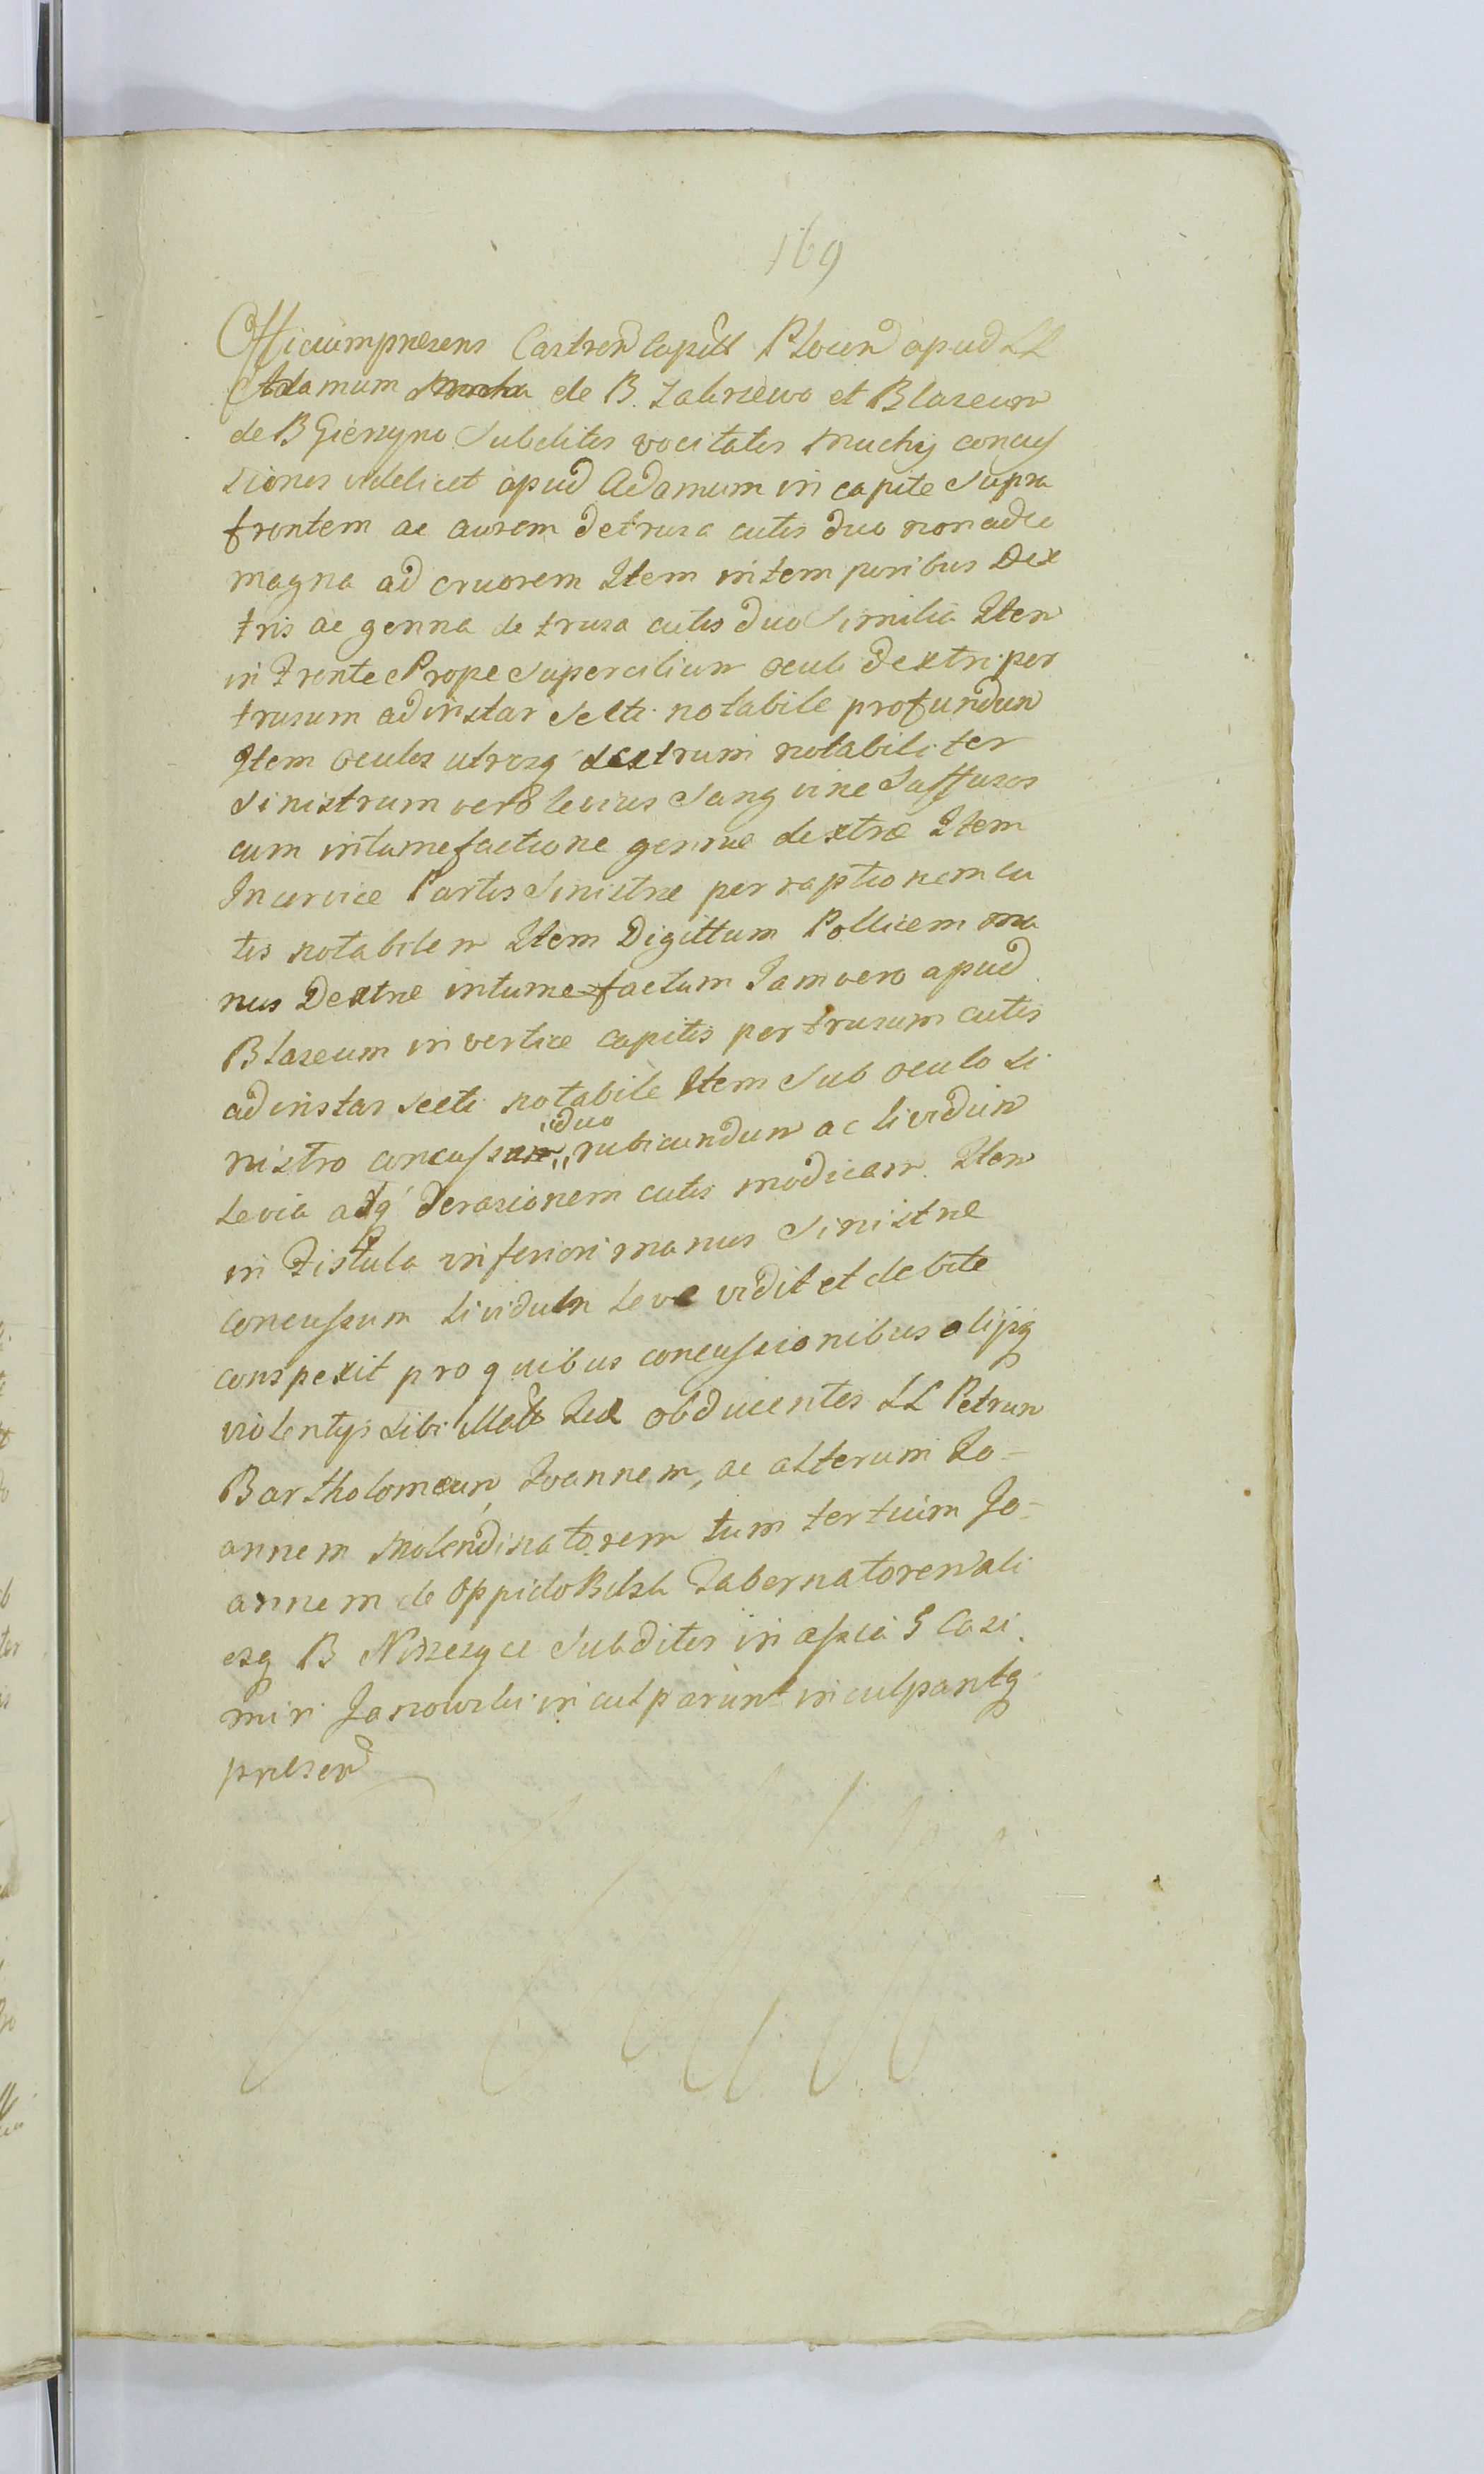 169
Officiumpræsens Castren Capitt Plocen apud LL
Adamum de B. Zakrzewo et Blaseum
de B Gierzyno Subditos vocitatos Muchy concus
siones videlicet apud Adamum in capite Supra
frontem ac aurem detrusa cutis duo non adeo
magna ad cruorem Item in temporibus Dex
tris ac genna detrusa cutis duo Similia Item
in Fronte Prope Supercilium oculi dextri per
trusum ad instar Secti notabile profundum
Item Oculos utrosq dextrum notabiliter
Sinistrum vero levius Sangvine Suffusos
cum intumefactione gennæ dextræ Item
In cervice Partis Sinistræ per raptionem cu
tis notabilem Item Digittum Pollicem ma
nus Dextræ intumefactum Jam vero apud
Blaseum in vertice capitis pertrusum cutis
ad instar Secti notabile Item Sub oculo Si
nistro concussa duo rubicundum ac lividum
Levia adq derasionem cutis modicam Item
in Fistula inferiori manus Sinistræ
concussum lividum Leve vidit et debite
conspexit pro quibus concussionibus alijsq
violentys Sibi illatt Iidem obducentes LL Petrum
Bartholomeum, Joannem, ac alterum Jo-
annem Molendinatorem tum tertium Jo-
annem de Oppido Bilsk Tabernatorem ali
osq B Subditos in assia G Casi
miri Jasnowski inculparunt inculpantq
præsen